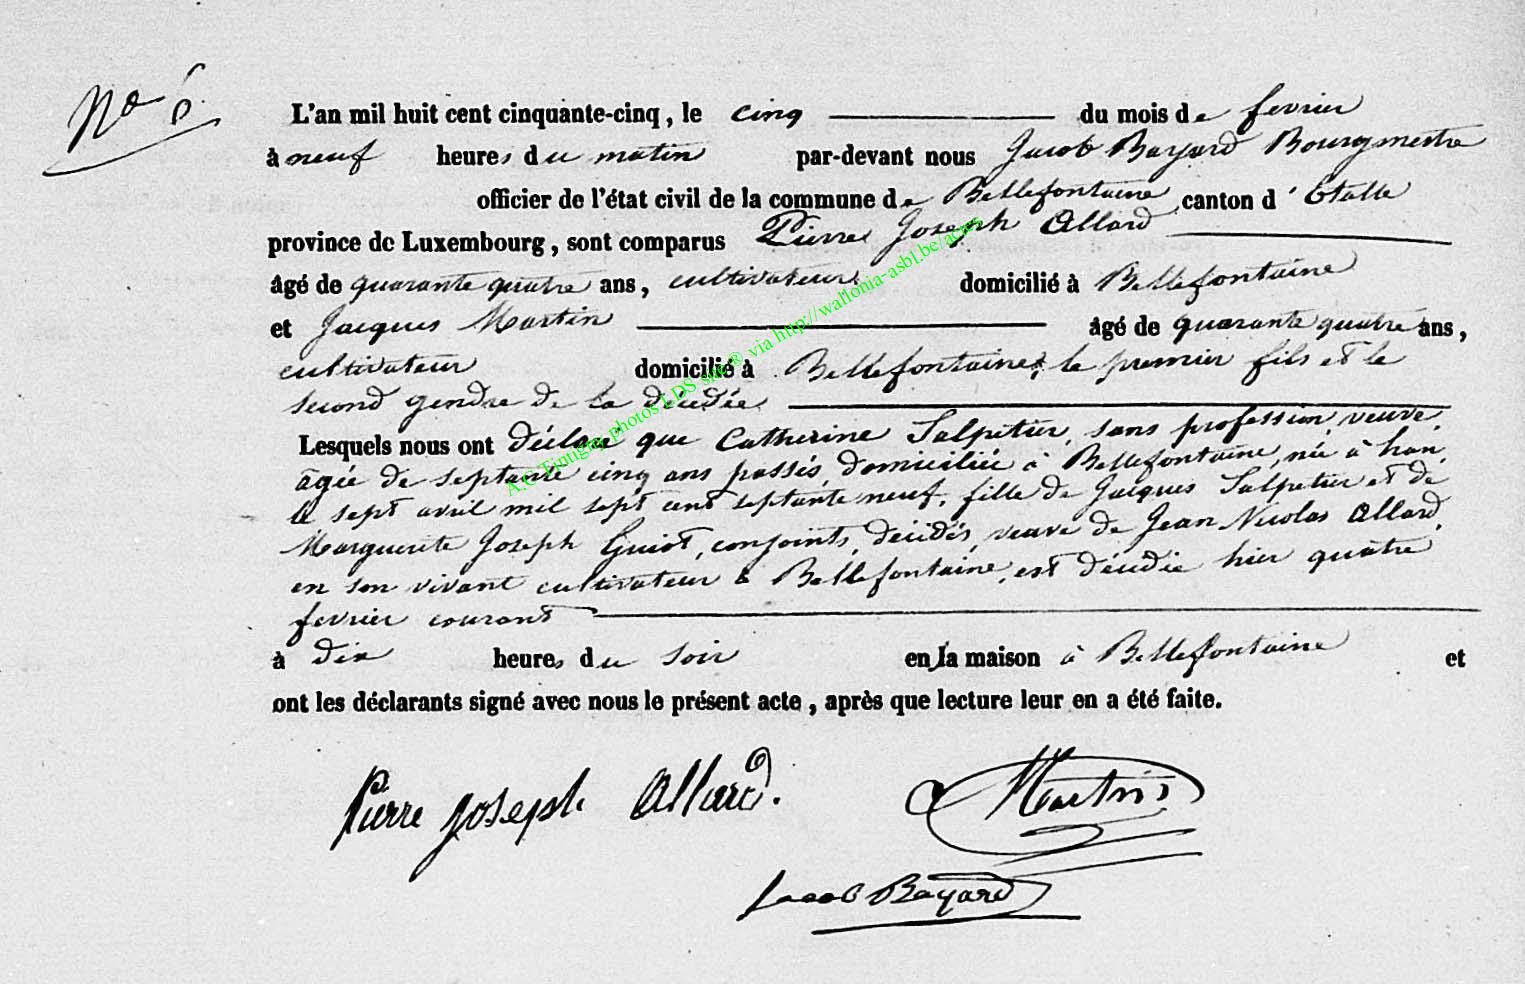 No 6
L'an mil huit cent cinquante-cinq, le cinq du mois de fevrier
à neuf heures du matin par-devant nous Jacob Bayard Bourgmestre
officier de l'état civil de la commune de Bellefontaine canton d'Etalle
province de Luxembourg, sont comparus Pierre Joseph Allard
âgé de quarante quatre ans, cultivateur domicilié à Bellefontaine
et Jacques Martin âgé de quarante quatre ans,
cultivateur domicilié à Bellefontaine, le premier fils et le
second gendre de la décédée
Lesquels nous ont déclaré que Catherine Salpetier, sans profession, veuve,
agée de septante cinq ans passés, domiciliée à Bellefontaine, née à han,
le sept avril mil sept cent septante neuf, fille de Jacques Salpetier et de
Marguerite Joseph Guiot, conjoints, décédés, veuve de Jean Nicolas Allard,
en son vivant cultivateur à Bellefontaine, est décédée hier quatre
fevrier courant
à dix heures du soir en la maison à Bellefontaine et
ont les déclarants signé avec nous le présent acte, après que lecture leur en a été faite.
Pierre Joseph Allard. Martin
Jacob Bayard
A.G. Tintigny photos LDS site® via http://wallonia-asbl.be/actes